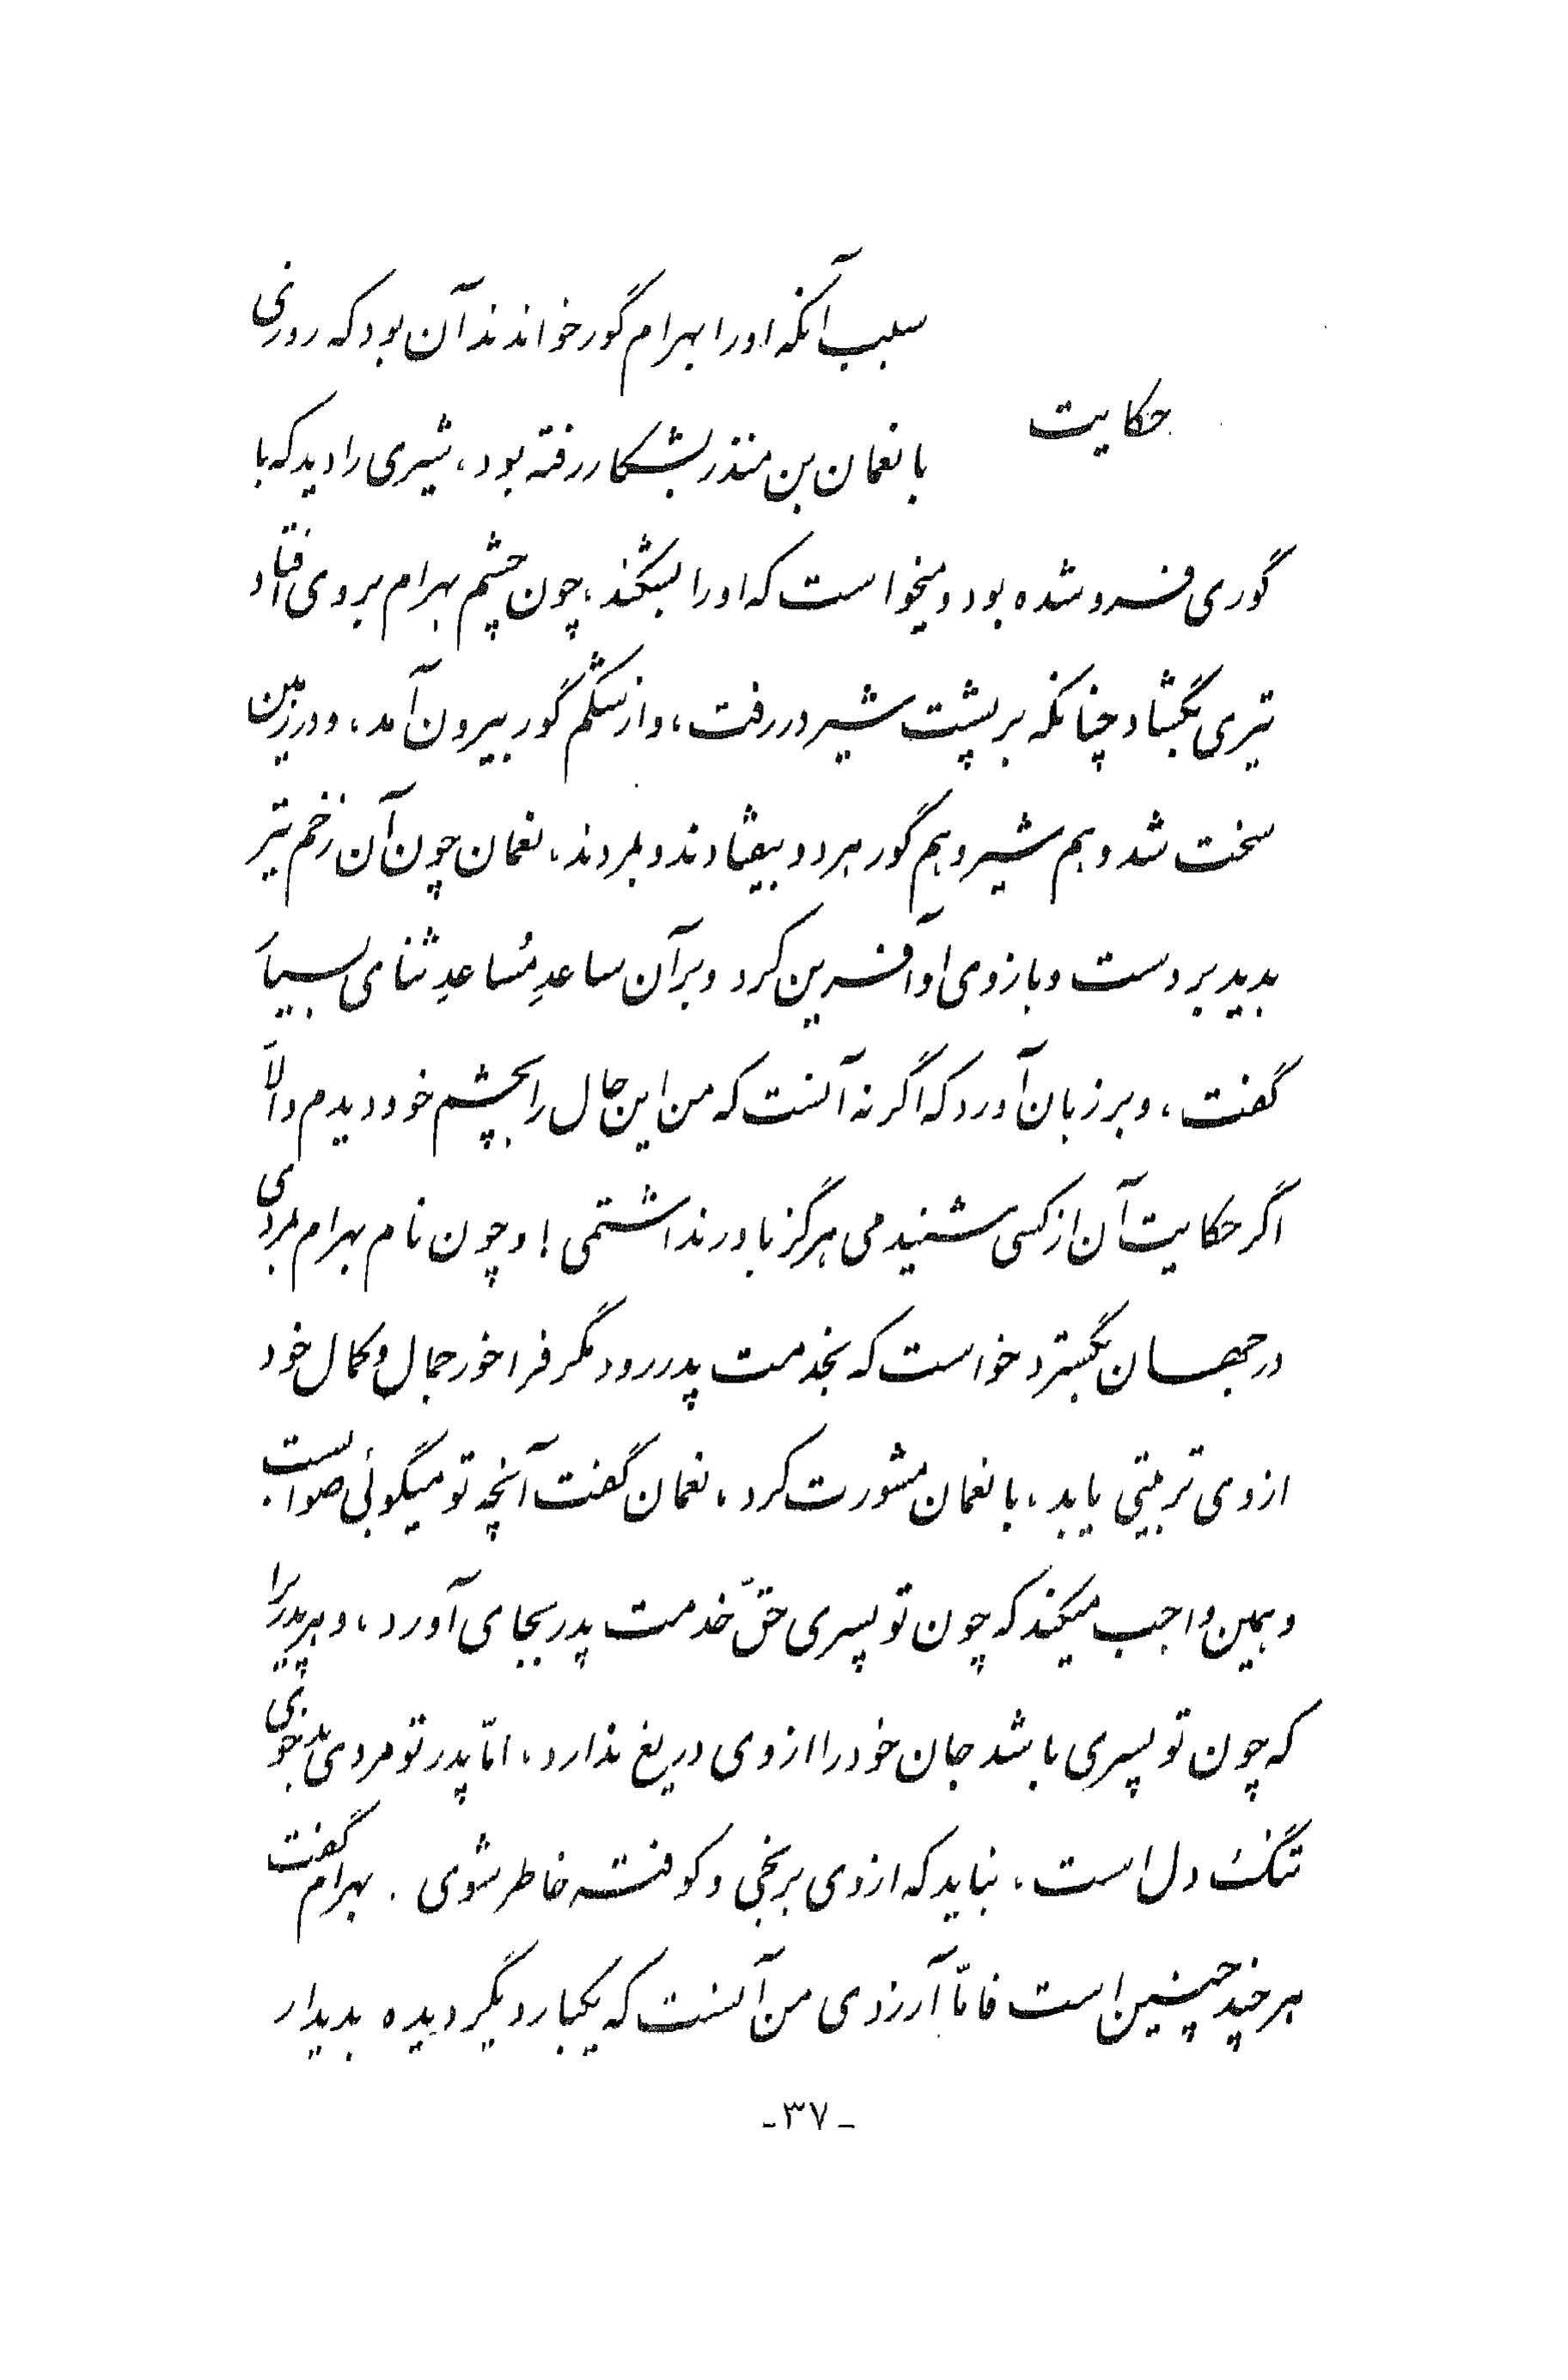 سبب آنکه او را بهرام گور خواندند آن بود که روزی
حکایت
با نعمان بن منذر بشکار رفته بود، شیری را دید که با
گوری فرو شده بود و میخواست که او را بشکند، چون چشم بهرام بر وی افتاد
تیری بگشاد چنانکه بر پشت شیر در رفت، و از شکم گور بیرون آمد، و در زمین
سخت شد و هم شیر و هم گور هر دو بیفتادند و بمردند، نعمان چون آن زخم تیر
بدید بر دست و بازوی او آفرین کرد و بر آن ساعدِ مُساعدِ ثنای بسیار
گفت، و بر زبان آورد که اگر نه آنست که من این حال را بچشم خود دیدم و الّا
اگر حکایت آن از کسی شنیدمی هرگز باور نداشتمی! و چون نام بهرام بمردی
در جهان بگسترد خواست که بخدمت پدر رود مگر فراخور جمال و کمال خود
از وی تربیتی یابد، با نعمان مشورت کرد، نعمان گفت آنچه تو میگوئی صوابست
و همین واجب میکند که چون تو پسری حقّ خدمت پدر بجای آورد، و هر پدر را
که چون تو پسری باشد جان خود را از وی دریغ ندارد، امّا پدر تو مردی بدخوی
تنگ دل است، نباید که از وی برنجی و کوفته خاطر شوی. بهرام گفت
هر چند چنین است فامّا آرزوی من آنست که یکبار دیگر دیده بدیدار
-۳۷-